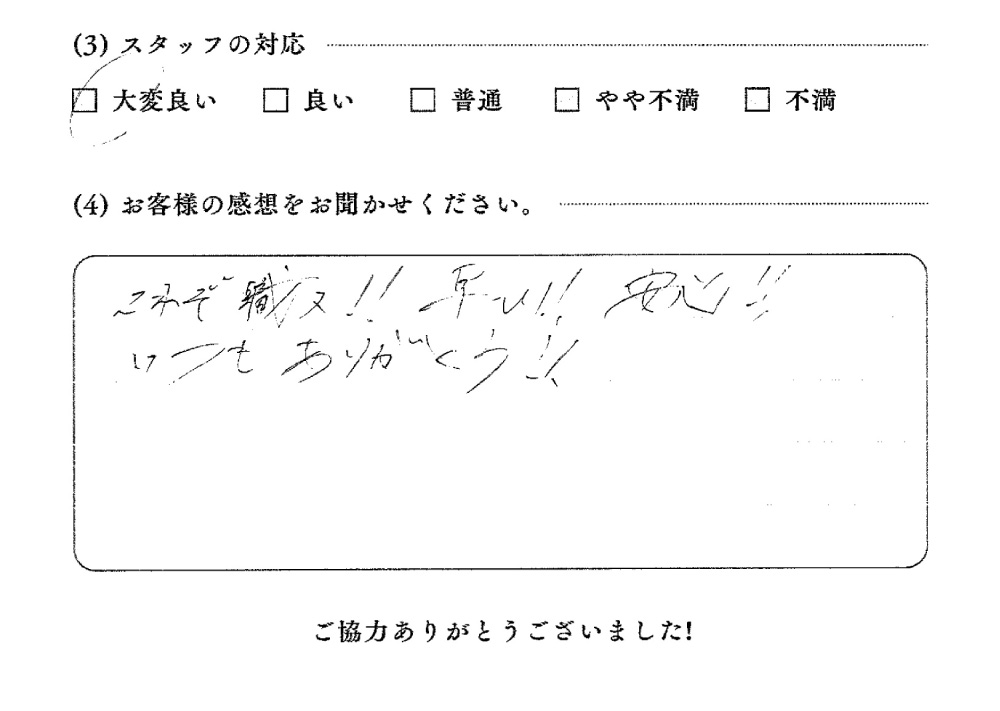 (3) スタッフの対応
□ 大変良い □ 良い □ 普通 □ やや不満 □ 不満
(4) お客様の感想をお聞かせください。
これぞ職人!! 早い!! 安心!!
いつもありがとう!!
ご協力ありがとうございました!